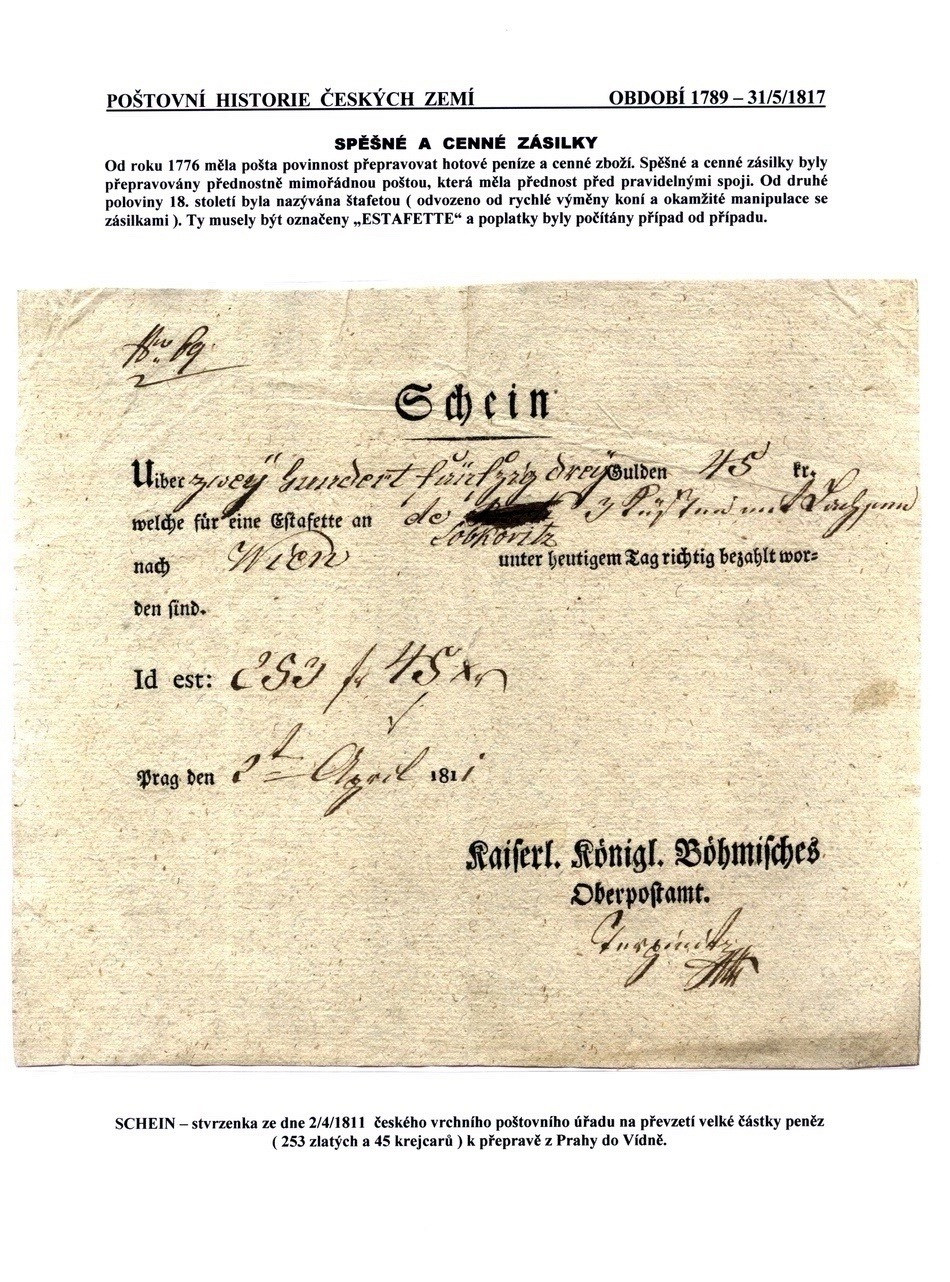 POŠTOVNÍ HISTORIE ČESKÝCH ZEMÍ OBDOBÍ 1789 – 31/5/1817
SPĚŠNÉ A CENNÉ ZÁSILKY
Od roku 1776 měla pošta povinnost přepravovat hotové peníze a cenné zboží. Spěšné a cenné zásilky byly
přepravovány přednostně mimořádnou poštou, která měla přednost před pravidelnými spoji. Od druhé
poloviny 18. století byla nazývána štafetou ( odvozeno od rychlé výměny koní a okamžité manipulace se
zásilkami ). Ty musely být označeny „ESTAFETTE“ a poplatky byly počítány případ od případu.
69
Schein
Uiber zwey hundert fünfzig drey Gulden 45 kr.
welche für eine Estafette an de 3 Küsten mit
Lobkovitz
nach Wien unter heutigem Tag richtig bezahlt wor=
den sind.
Id est: 253 fr 45 xr
Prag den 2t April 1811
Kaiserl. Königl. Böhmisches
Oberpostamt.
SCHEIN – stvrzenka ze dne 2/4/1811 českého vrchního poštovního úřadu na převzetí velké částky peněz
( 253 zlatých a 45 krejcarů ) k přepravě z Prahy do Vídně.